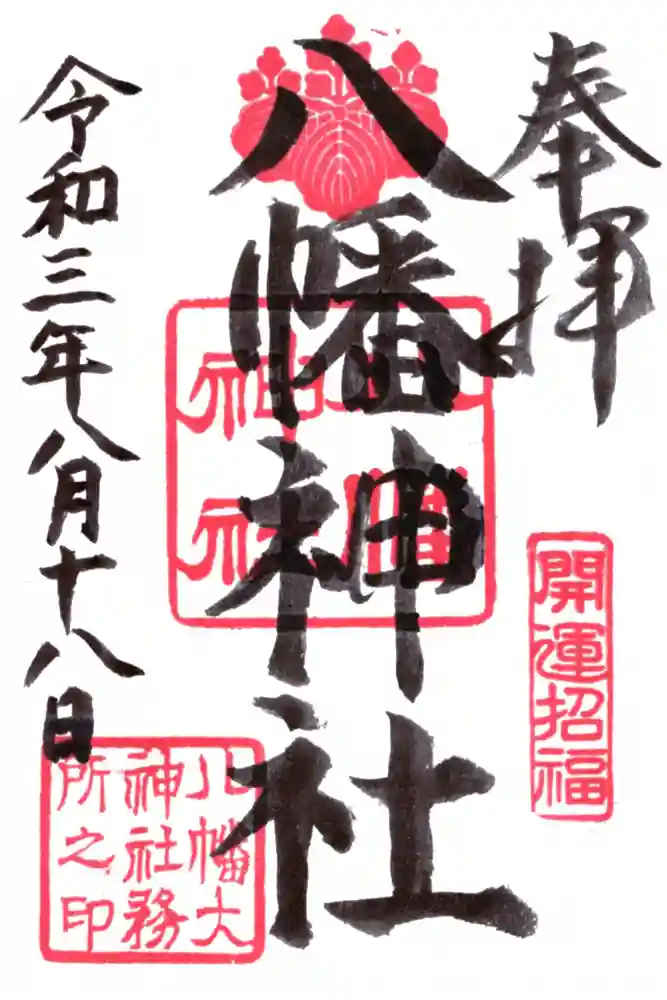 奉拝
開運招福
八幡神社
八幡
神社
八幡大
神社務
所之印
令和三年八月十八日